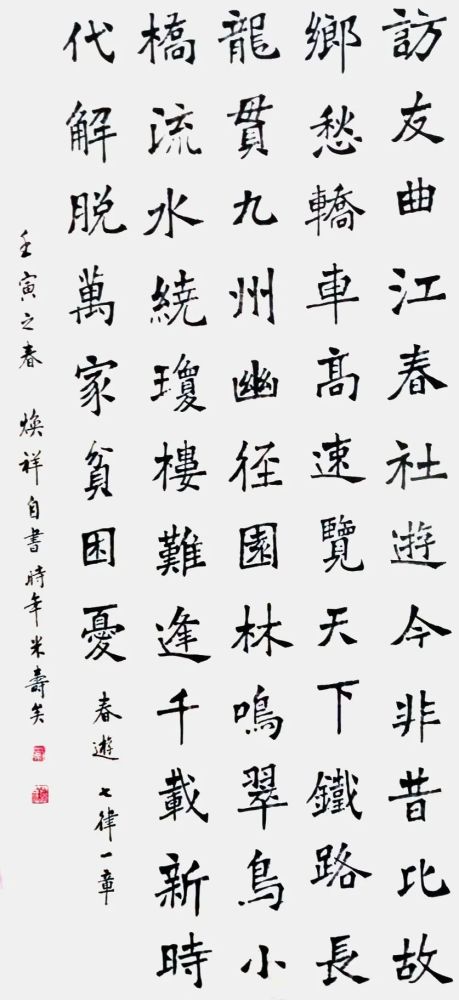 訪友曲江春社遊今非昔比故
鄉愁轎車高速覽天下鐵路長
龍貫九州幽径園林鳴翠鳥小
橋流水繞瓊樓難逢千載新時
代解脫萬家貧困憂 春遊 七律一章
壬寅之春 煥祥自書時年米壽矣